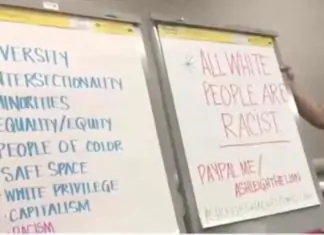 VERSITY
TERSECTIONALITY
MINORITIES
EQUALITY/EQUITY
PEOPLE OF COLOR
SAFE SPACE
• WHITE PRIVILEGE
• CAPITALISM
RACISM
* ALL WHITE
PEOPLE ARE
RACIST
PAYPAL.ME/